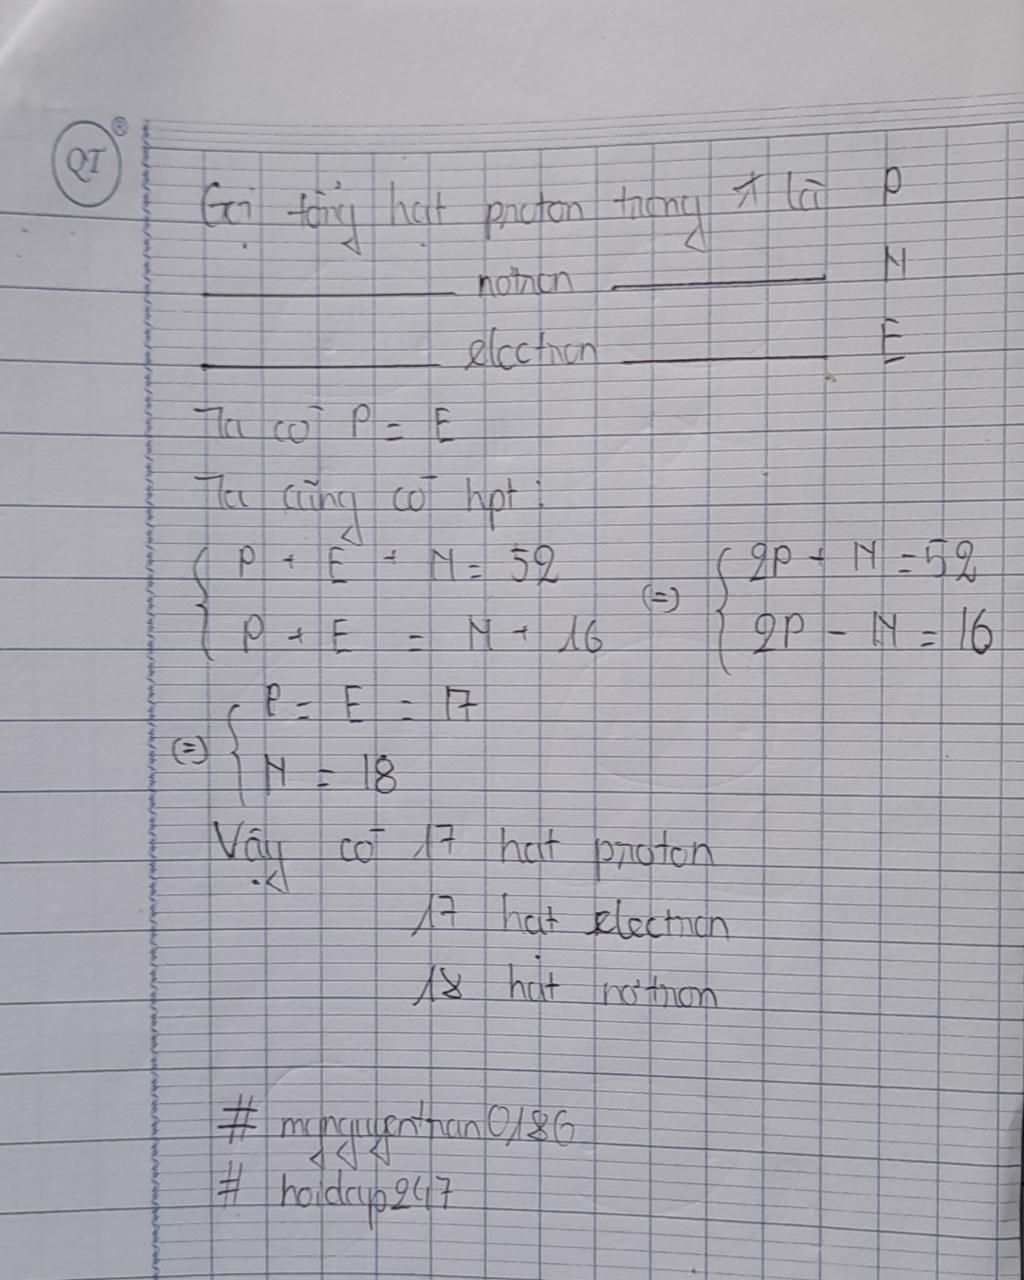 QT
Gọi tổng hạt proton trong X là P
______ notron ______ N
______ electron ______ E
Ta có P = E
Ta cũng có hpt:
{ P + E + N = 52 (=) { 2P + N = 52
{ P + E = N + 16 { 2P - N = 16
(=) { P = E = 17
{ N = 18
Vậy có 17 hạt proton
17 hạt electron
18 hạt nơtron
# mcnguyentran0186
# hoidap247